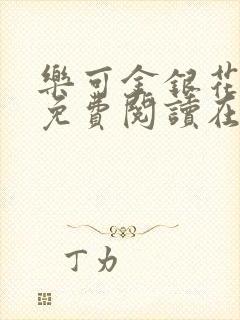 樂可金銀花
免費閱讀在
丁力